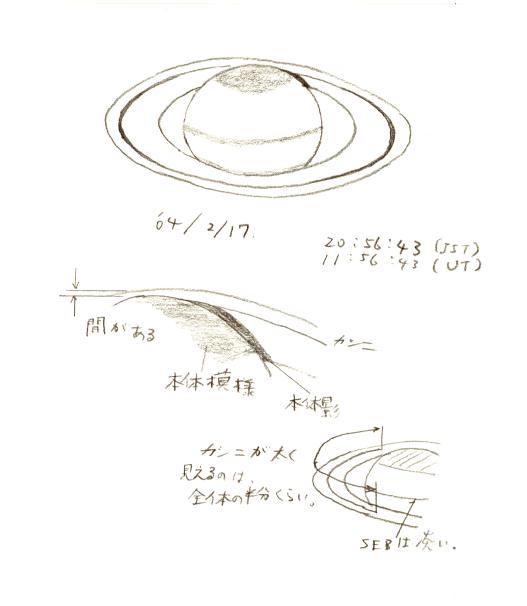 '04/2/17.
20:56:43 (JST)
11:56:43 (UT)
間がある
カシニ
本体模様
本体影
カシニが太く
見えるのは、
全体の半分くらい。
SEBは淡い。